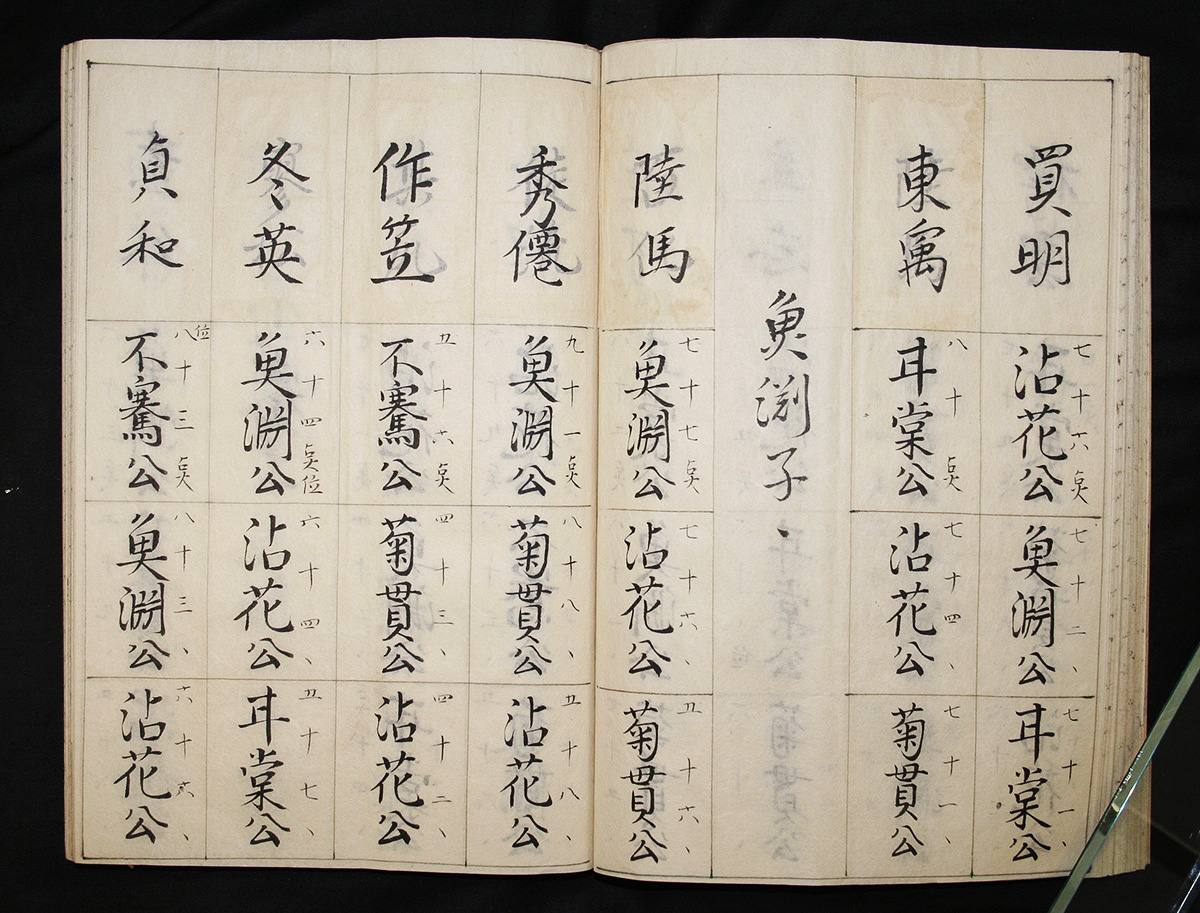 買明
七十六点
沾花公
七十二、
魚淵公
七十一、
耳棠公
東寓
八十点
耳棠公
七十四、
沾花公
七十一、
菊貫公
魚渕子、
陸馬
七十七点
魚淵公
七十六、
沾花公
五十六、
菊貫公
秀僊
九十一点
魚淵公
八十八、
菊貫公
五十八、
沾花公
作笠
五十六点
不騫公
四十三、
菊貫公
四十二、
沾花公
冬英
六十四点位
魚淵公
六十四、
沾花公
五十七、
耳棠公
貞和
位
八十三点
不騫公
八十三、
魚淵公
六十六、
沾花公